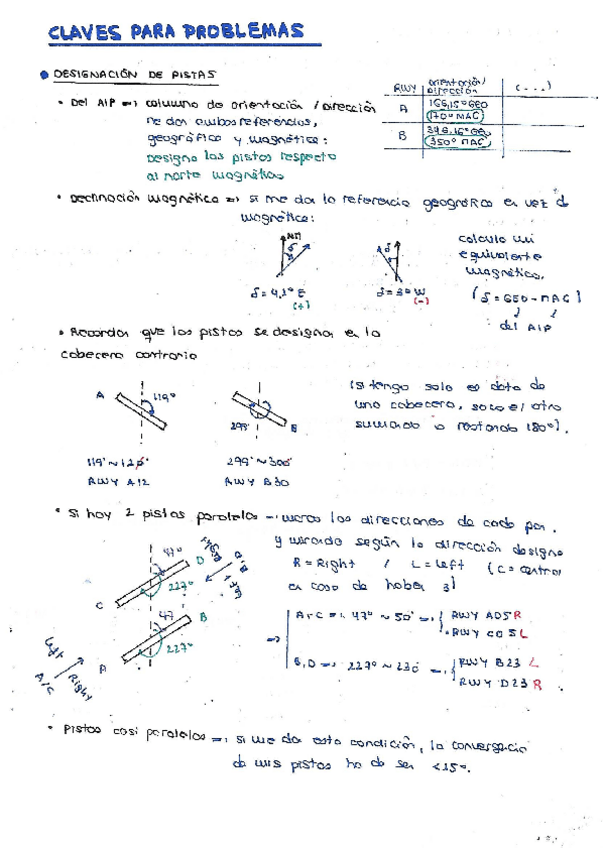 CLAVES PARA PROBLEMAS
DESIGNACIÓN DE PISTAS
RWY orientación/ dirección (...)
A 166,15° GEO
(170° MAG)
B 346,16° GEO
(350° MAG)
• Del AIP => columna de orientación / dirección
me da ambas referencias,
geográfica y magnética:
Designo las pistas respecto
al norte magnético
• Declinación magnética => si me da la referencia geográfica en vez de
magnética:
δ
δ = 4,1° E
(+)
δ
δ = 3° W
(-)
calculo mi
equivalente
magnético.
(δ = GEO - MAG)
del AIP
• Recordar que las pistas se designan en la
cabecera contraria
A 119°
119° ~ 120°
RWY A12
299° B
299° ~ 300°
RWY B30
(si tengo solo el dato de
una cabecera, saco el otro
sumando o restando 180°).
• Si hay 2 pistas paralelas => miramos las direcciones de cada par.
y mirando según la dirección designo
R = Right / L = Left (C = central
en caso de haber 3)
47° D
227°
C
47 B
227°
A
Right
B/D
Left
Left
A/C
Right
=> A, C => 47° ~ 50° => RWY A05R
RWY C05L
B, D => 227° ~ 230 => RWY B23 L
RWY D23 R
• Pistas casi paralelas => si me dan esta condición, la convergencia
de mis pistas ha de ser <15°.